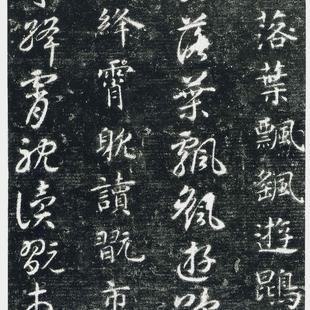 落葉飄颻遊鵾
落葉飄颻遊鵾
絳霄耽讀翫市
絳霄耽讀翫市